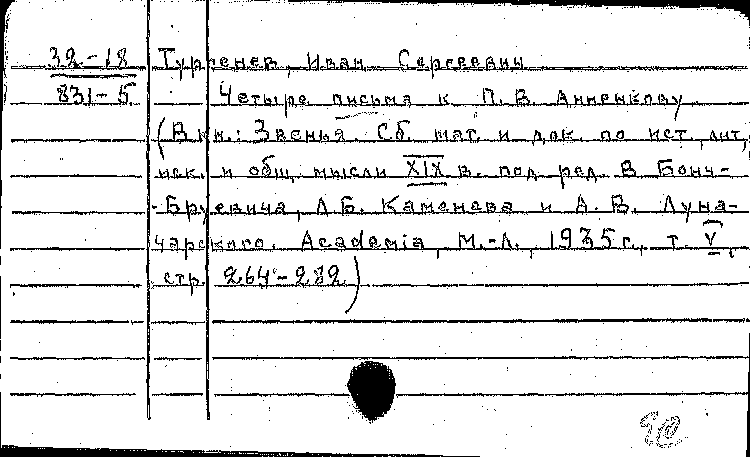 32-18 Тургенев, Иван Сергеевич
831-5 Четыре письма к П. В. Анненкову.
(В кн.: Звенья. Сб. мат. и док. по ист. лит.,
иск. и общ. мысли XIX в. под ред. В Бонч-
-Бруевича, Л.Б. Каменева и А. В. Луна-
чарского. Academia, М.-Л., 1935 г., т. V,
стр. 264-282)